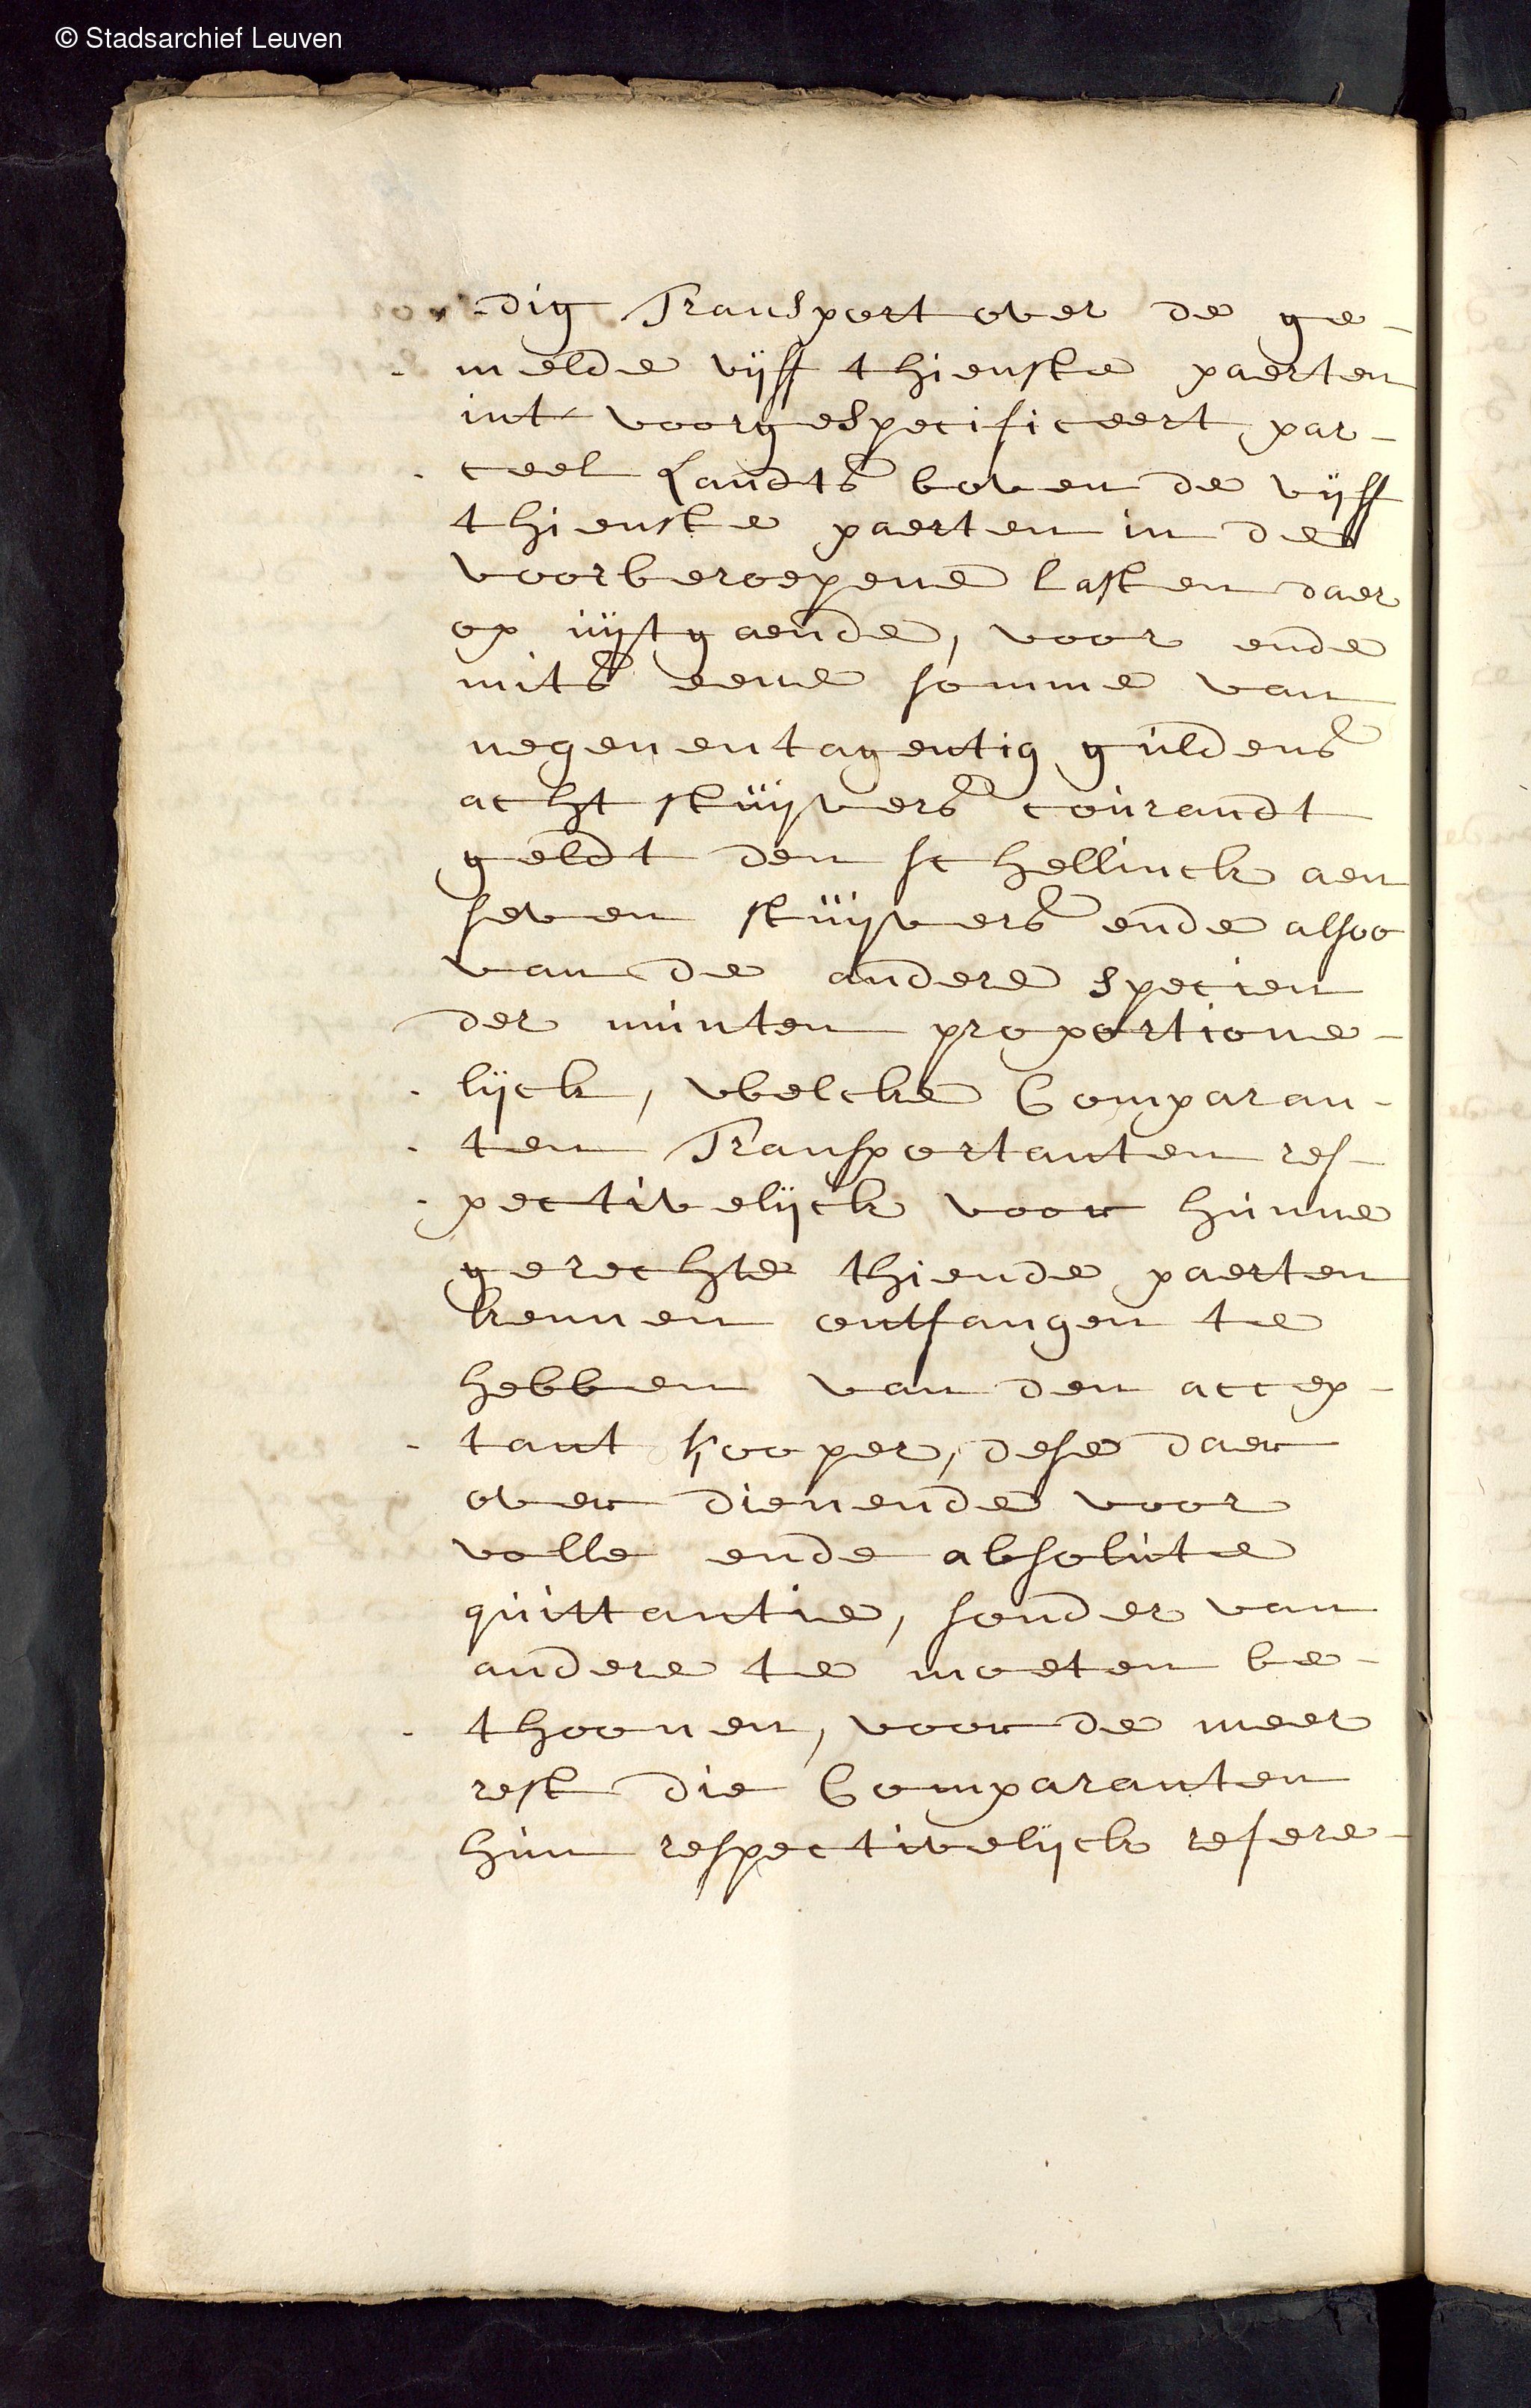 © Stadsarchief Leuven
-dig Transport over de ge-
- melde vijff thienste paerten
int voorgespecificeert par-
- ceel Landts boven de vijff
thienste paerten in de
voorberoepene lasten daer
op uijtgaende, voor ende
mits eene somme van
negenentagentig guldens
acht stuijvers courandt
geldt den schellinck aen
seven stuijvers ende alsoo
van de andere specien
der munten proportione-
- lijck, welcke Comparan-
- ten Transportanten res-
- pectivelijck voor hunne
gerechte thiende paerten
kennen ontfangen te
hebben van den accep-
- tant kooper, dese daer
over dienende voor
volle ende absolute
quittantie, sonder van
andere te moeten be-
- thoonen, voor de meer
rest die Comparanten
hun respectivelijck refere-